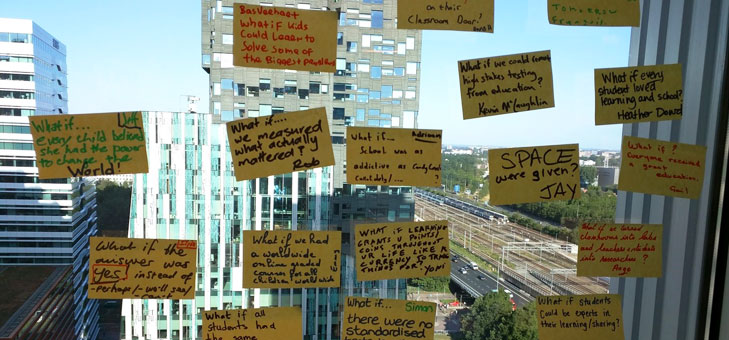 BasVerhoeft
What if kids
Could Learn to
Solve some of
the Biggest
on their
Classroom Door?
TOMORROW
What if we could
high stakes testing
from education?
Kevin McLaughlin
What if every
student loved
learning and school?
Heather
What if....
every child believed
she had the power
to change the
World!
What if....
we measured
what actually
mattered? Rob
What if...
School was as
addictive as
SPACE
were given?
JAY
What if?
Everyone received
a great
education.
What if the
answer was
yes! instead of
-perhaps/-we'll see/
What if we had
a worldwide
online graded
course for all
children worldwide
WHAT IF LEARNING
GRANTS U POINTS/
COINS THROUGHOUT
UR LIFE LIKE A
CURRENCY TO TRADE
THINGS FOR?
What if we turned
classrooms into labs
and teachers & students
into researchers?
What if all
students had
the same
What if... Simon
there were no
standardised
What if students
Could be experts in
their learning/sharing?